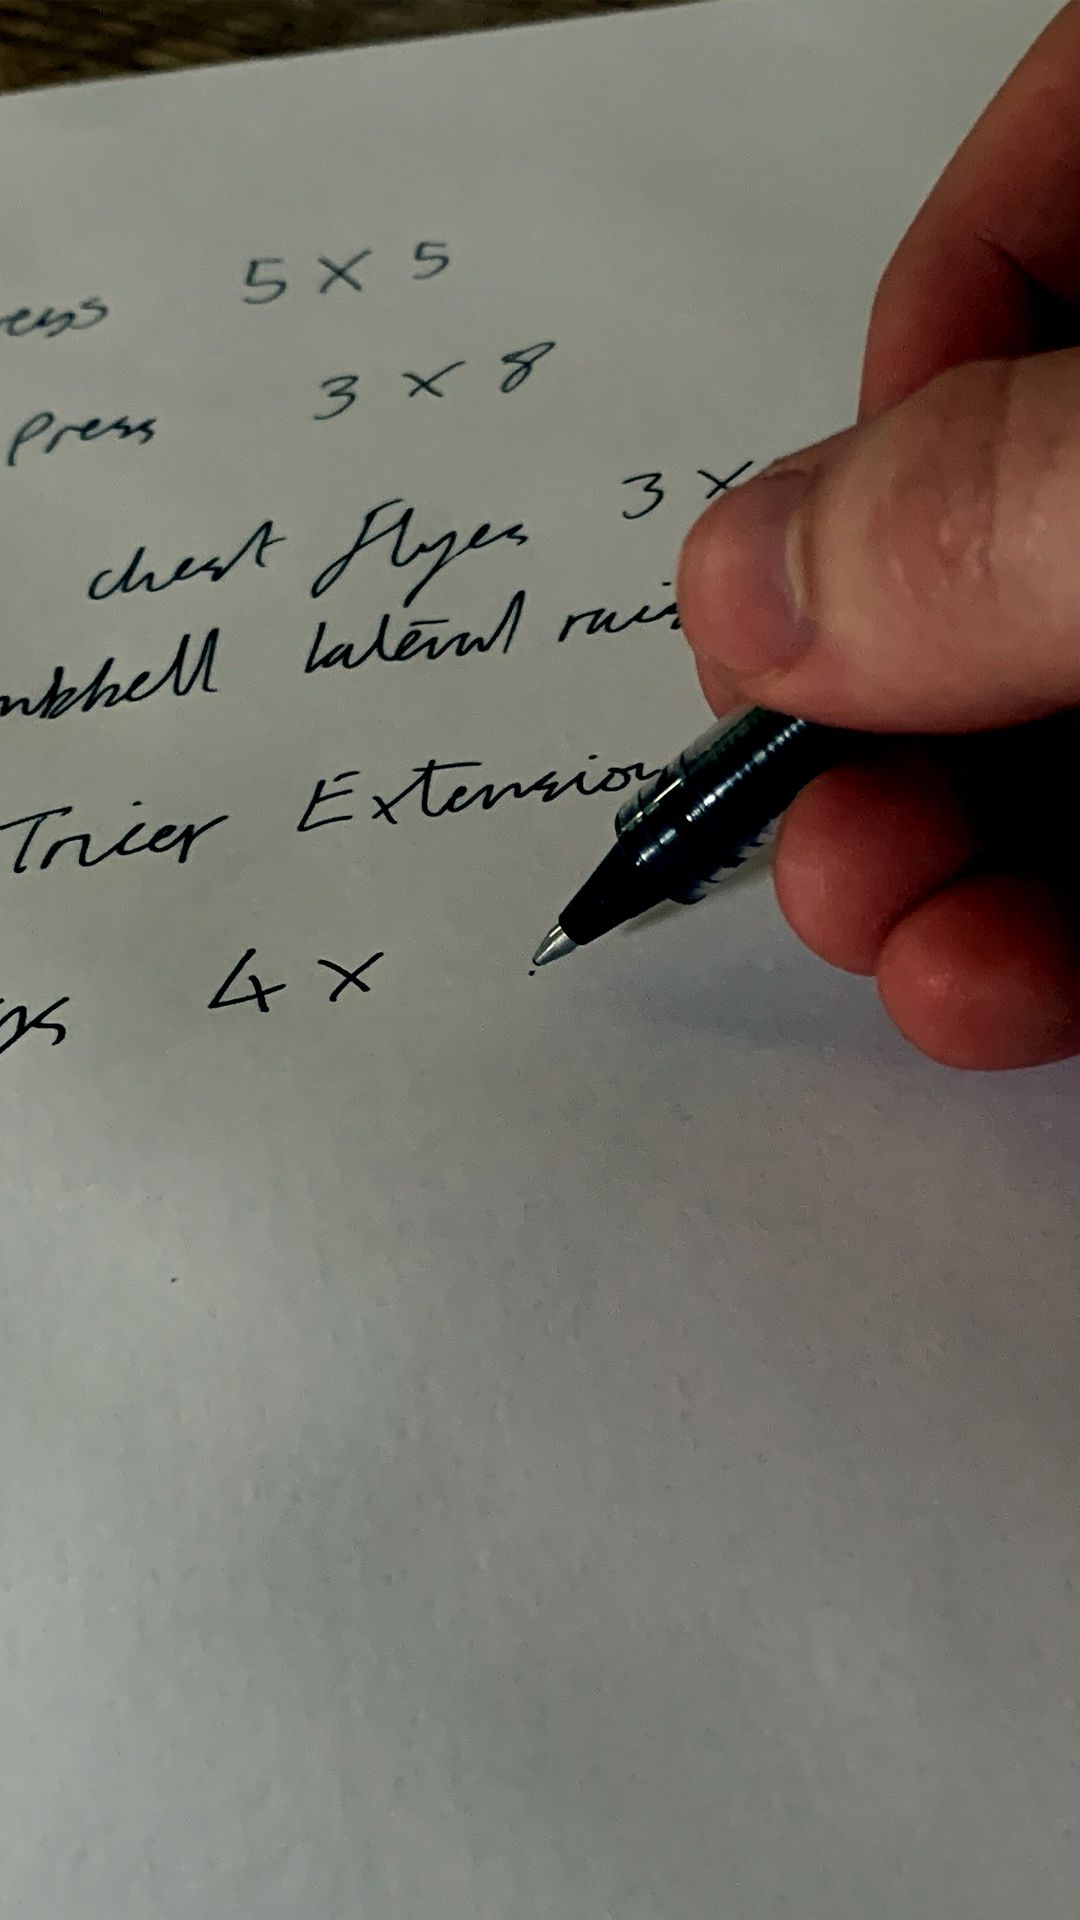 ess 5 X 5
Press 3 X 8
chest flyes 3 X
mbbell lateral rais
Tricep Extension
ps 4 X